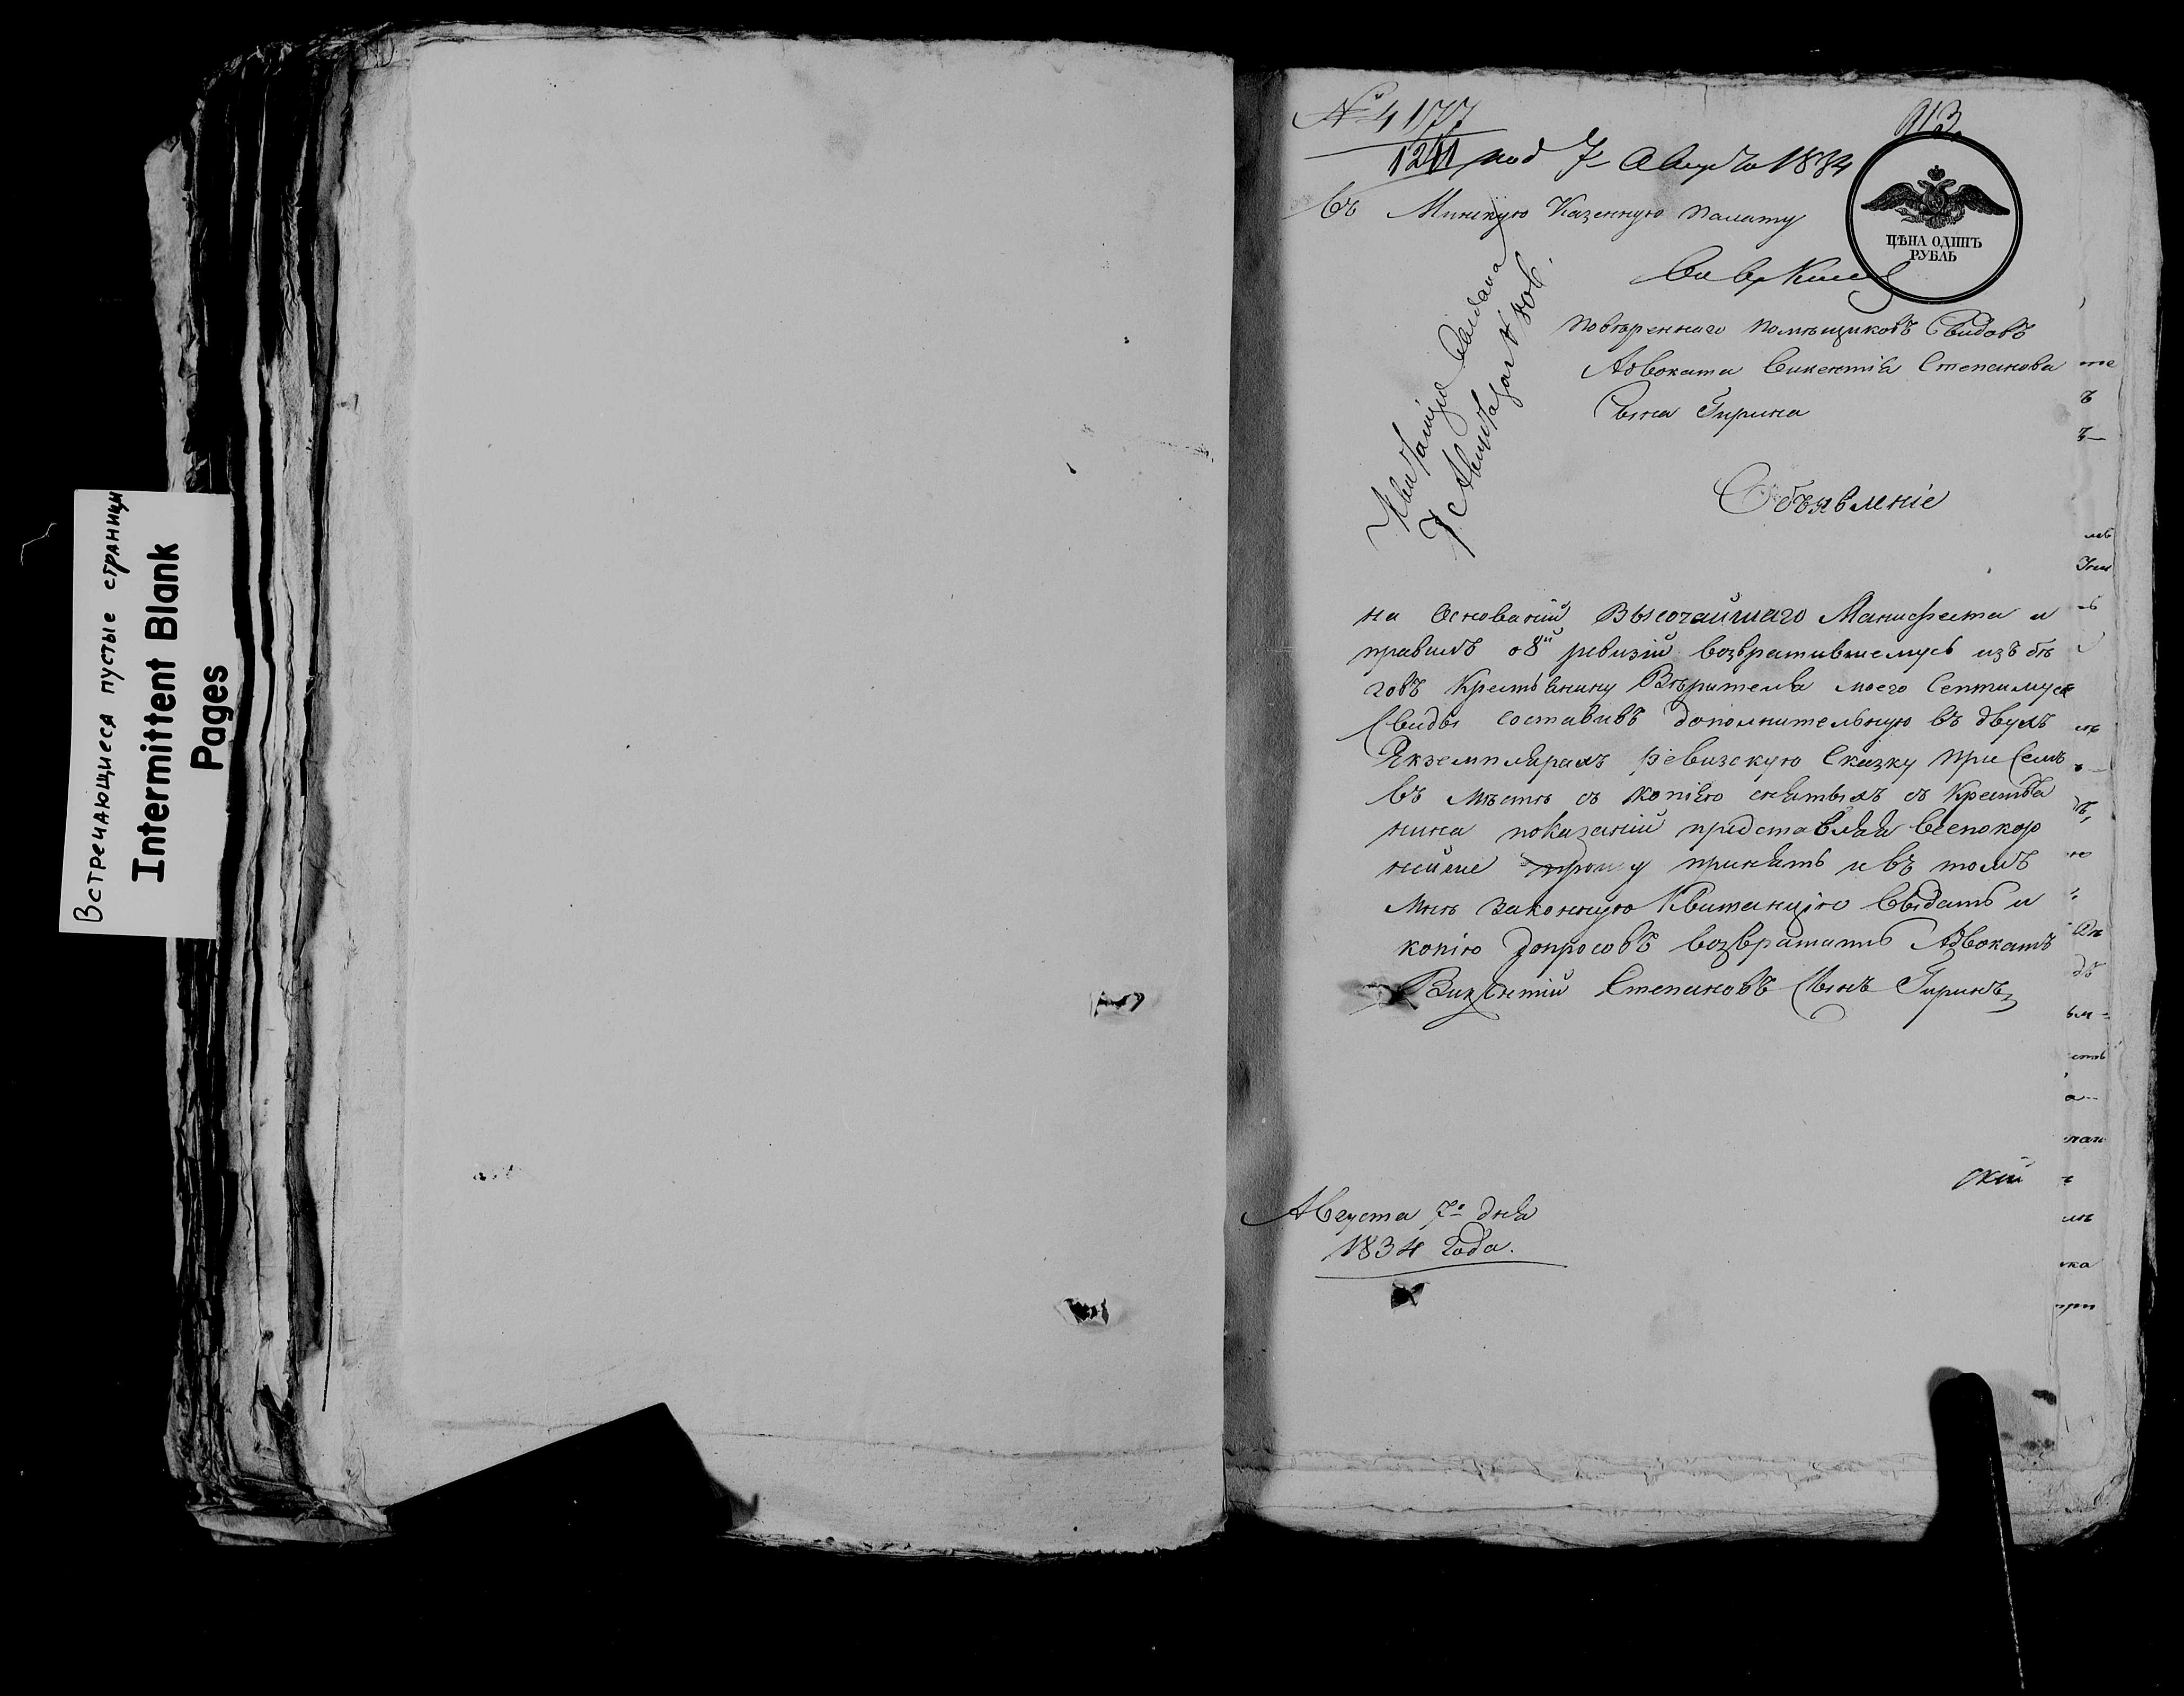 Встречающиеся пустые страницы
Intermittent Blank
Pages
№ 4177
1241 пол 7 Авгус 1834
913
въ Минскую Казенную Палату
ЦѢНА ОДИНЪ
РУБЛЬ
повѣреннаго помѣщиковъ Свидовъ
Адвоката Викентія Степанова
Сына Гирина
Квитанція выдана
7 Августа
Объявленіе
на Основаніи Высочайшаго Манифеста и
правилъ о 8й ревизіи возвратившемусь изъ бѣ
говъ Крестьянину Вѣрителя моего Септимуса
Свиды составивъ дополнительную въ двухъ
Экземплярахъ ревизскую Сказку при Семъ
въ мѣстѣ съ копіею снятыхъ съ Крестья
нина показаній представляя всепокор
нейше прошу принять и въ томъ
мнѣ законную Квитанцію выдать и
копію допросовъ возвратить Адвокатъ
Викентій Степановъ Сынъ Гиринъ
скій
Августа 7го дня
1834 Года.